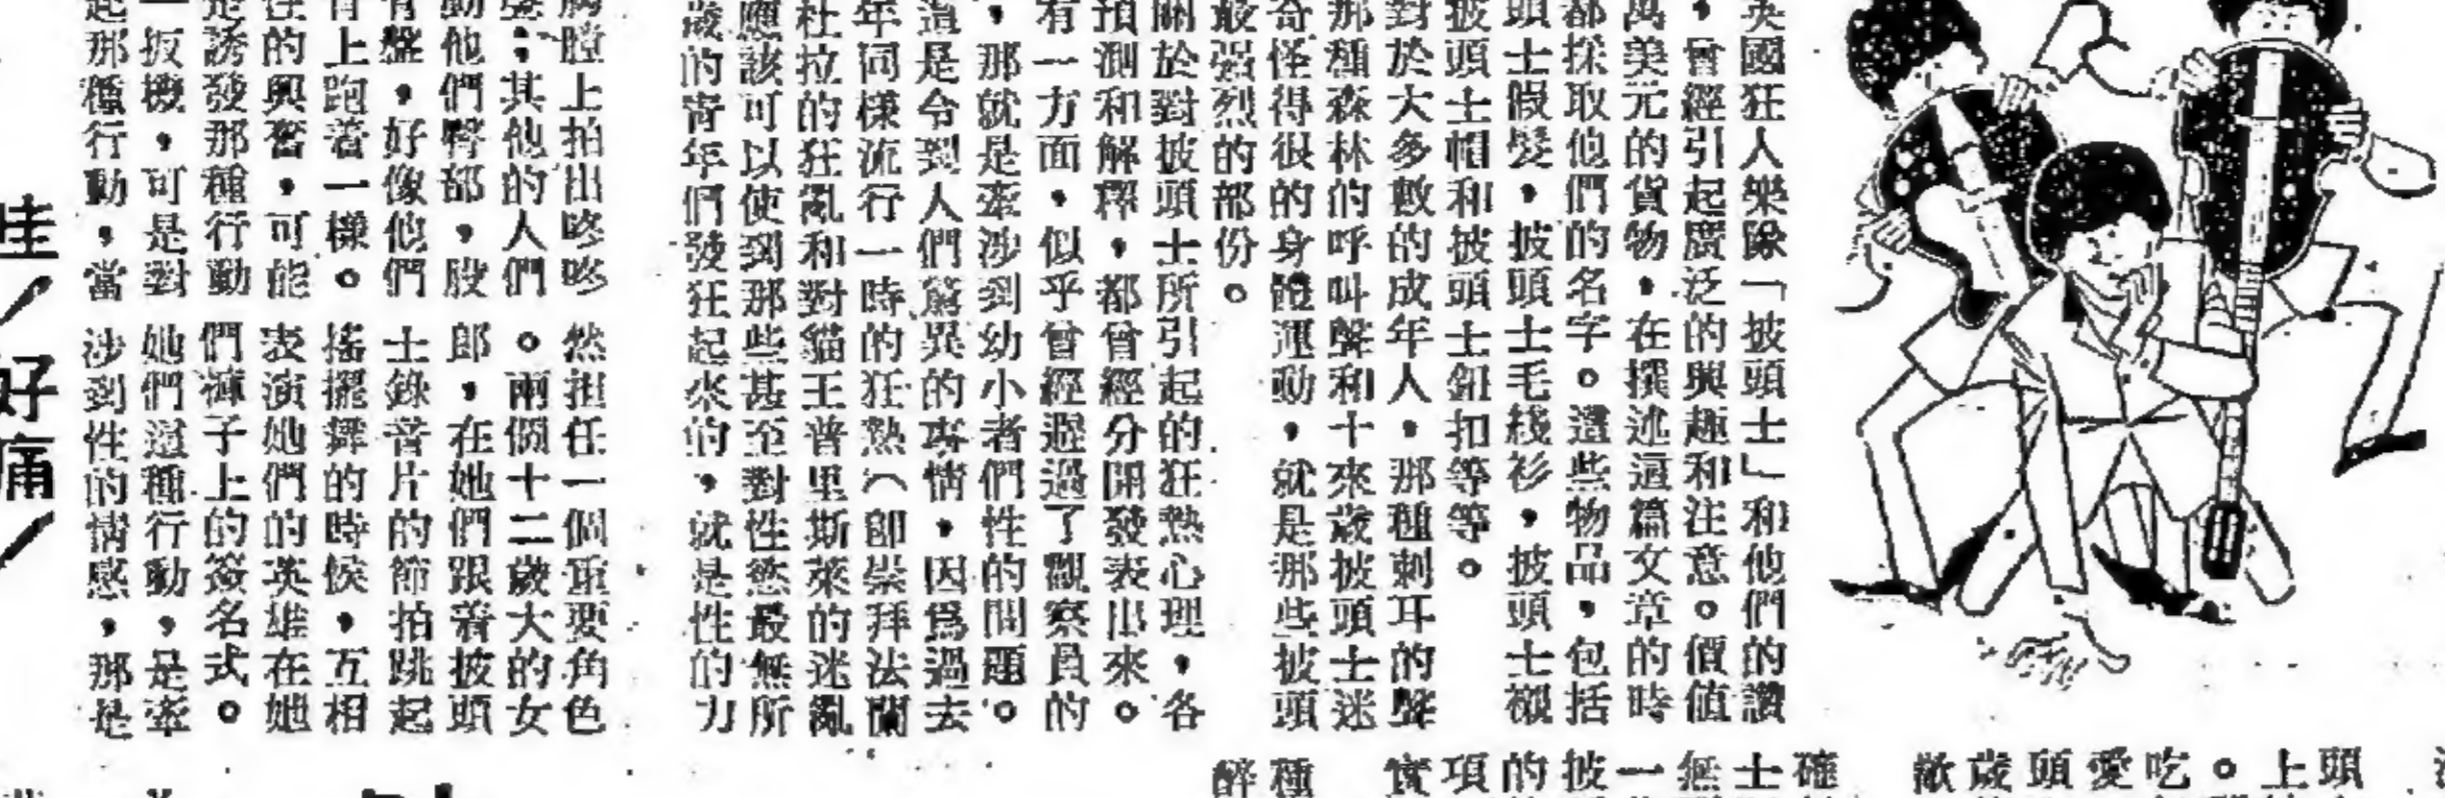 英國狂人樂隊「披頭士」和他們的讚
，曾經引起廣泛的興趣和注意。價值
萬美元的貨物，在撰述這篇文章的時
都採取他們的名字。這些物品，包括
頭士假髮，披頭士毛綫衫，披頭士襯
披頭士帽和披頭士鈕扣等等。
對於大多數的成年人，那種刺耳的聲
那種森林的呼叫聲和十來歲披頭士迷
奇怪得很的身體運動，就是那些披頭
最强烈的部份。
關於對披頭士所引起的狂熱心理，各
預測和解釋，都曾經分開發表出來。
有一方面，似乎曾經避過了觀察員的
，那就是牽涉到幼小者們性的問題。
這是令到人們驚異的事情，因爲過去
年同樣流行一時的狂熱（即崇拜法蘭
杜拉的狂亂和對貓王普里斯萊的迷亂
應該可以使到那些甚至對性慾最無所
歲的青年們發狂起來的，就是性的力
胸膛上拍出咚咚
聲；其他的人們
動他們臀部，股
有聲，好像他們
背上跑着一樣。
性的興奮，可能
是誘發那種行動
一扳機，可是對
起那種行動，當
然担任一個重要角色
。兩個十二歲大的女
郎，在她們跟着披頭
士錄音片的節拍跳起
搖擺舞的時候，互相
表演她們的英雄在她
們褲子上的簽名式。
她們這種行動，是牽
涉到性的情感，那是
哇！好痛！
頭
上
。
吃
愛
頭
歲
確
士
無
一
披
的
項
實
種
醉